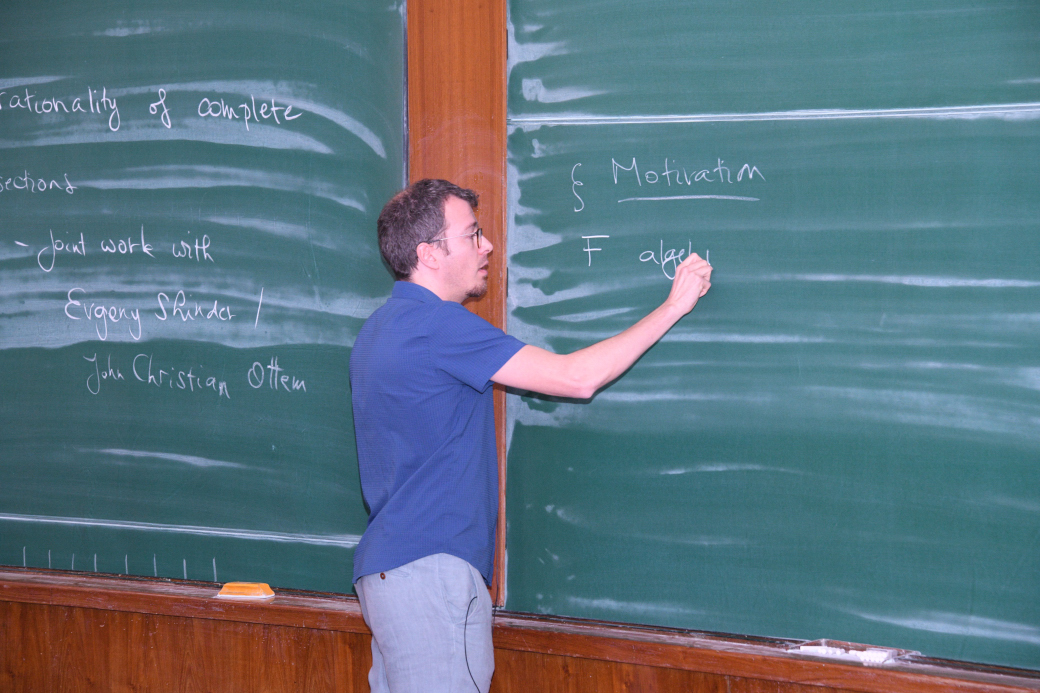 rationality of complete
sections
- Joint work with
Evgeny Shinder /
John Christian Ottem
§ Motivation
F algebr